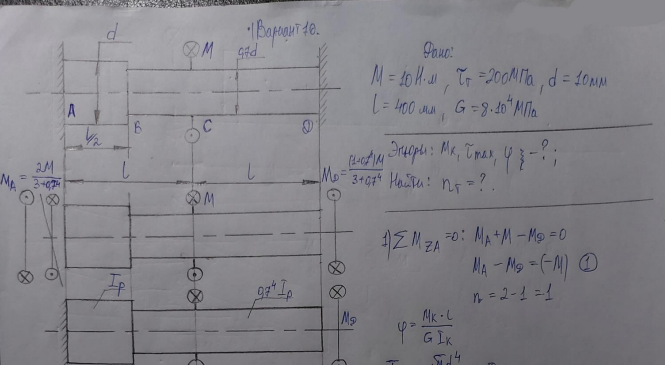 Вариант 10.
d
M
0,7d
A
B
C
D
l/2
l
l
M_A = 2M/(3+0,7⁴)
M_D = (1+0,7⁴)M/(3+0,7⁴)
M
I_p
0,7⁴ I_p
M_D
Дано:
M = 10 Н·м, τ_т = 200 МПа, d = 10 мм
l = 400 мм, G = 8·10⁴ МПа
Эпюры: M_к, τ_max, φ } - ?;
Найти: n_т = ?.
1) ∑M_ZA = 0: M_A + M - M_D = 0
M_A - M_D = (-M) ①
n = 2 - 1 = 1
φ = M_к · l / G I_к